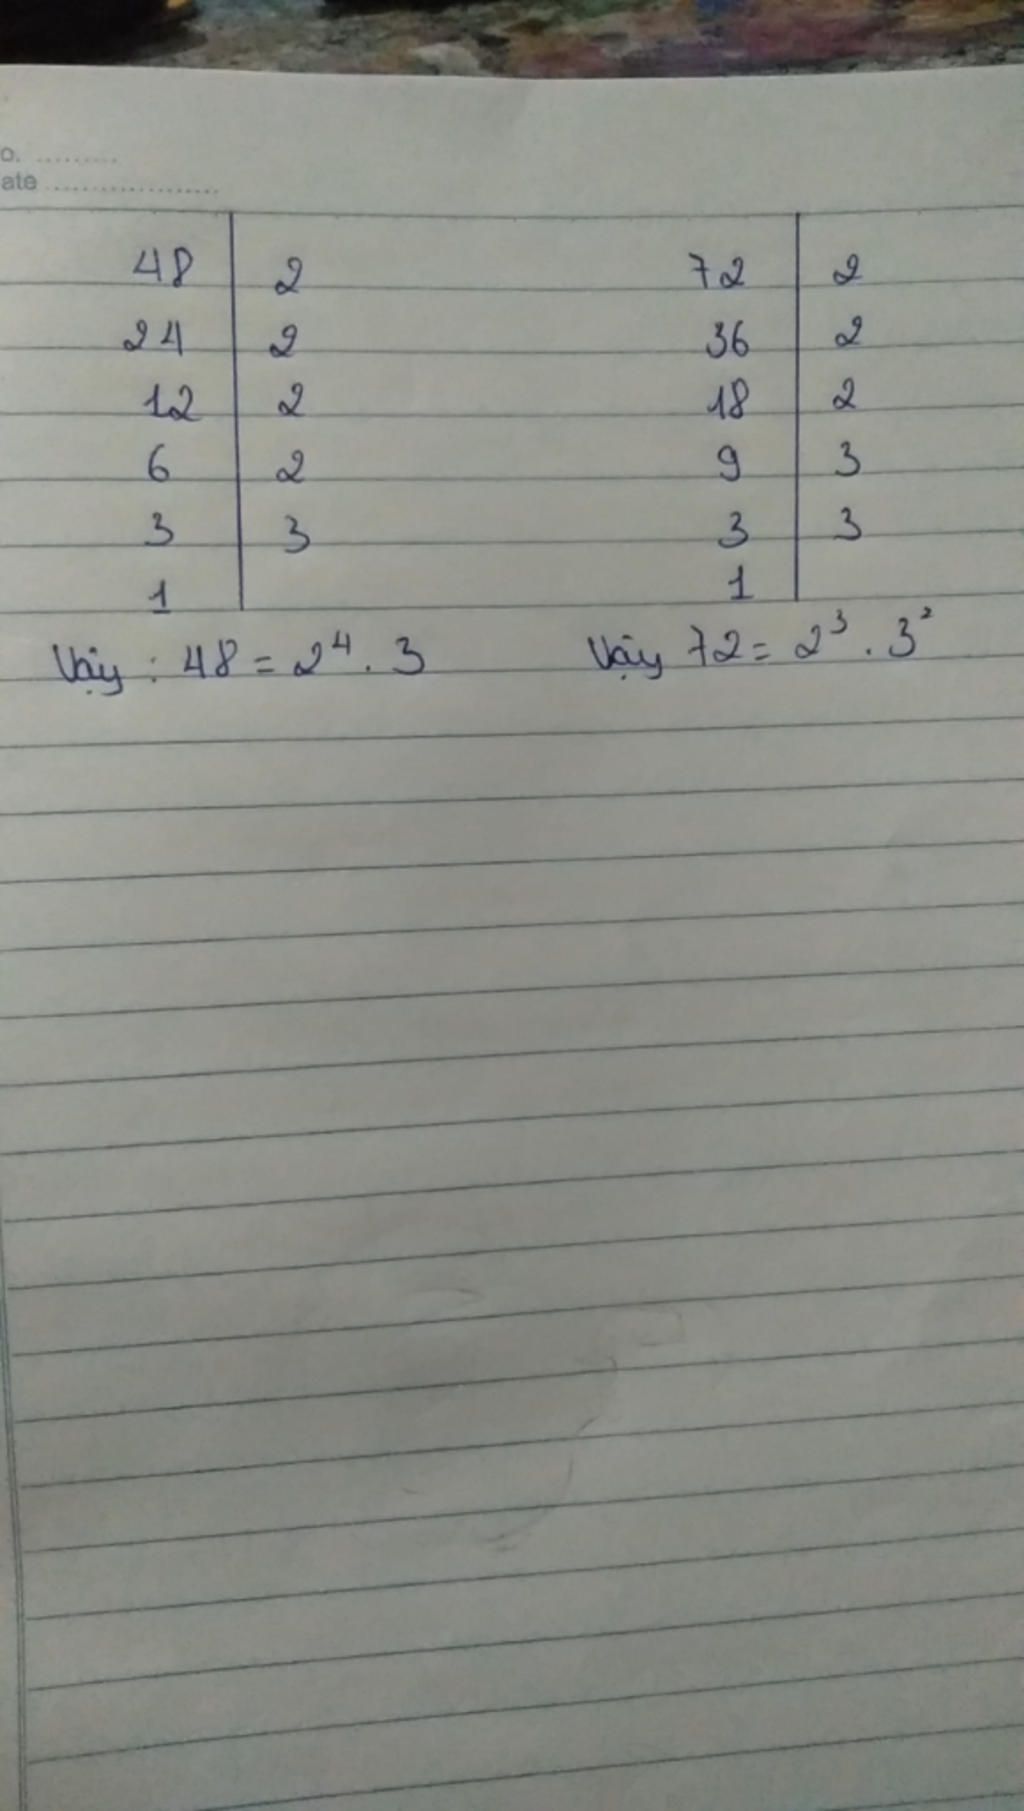 o. .........
ate ...................
48 | 2 72 | 2
24 | 2 36 | 2
12 | 2 18 | 2
6 | 2 9 | 3
3 | 3 3 | 3
1 | 1 |
Vậy : 48 = 2⁴ . 3 Vậy 72 = 2³ . 3²